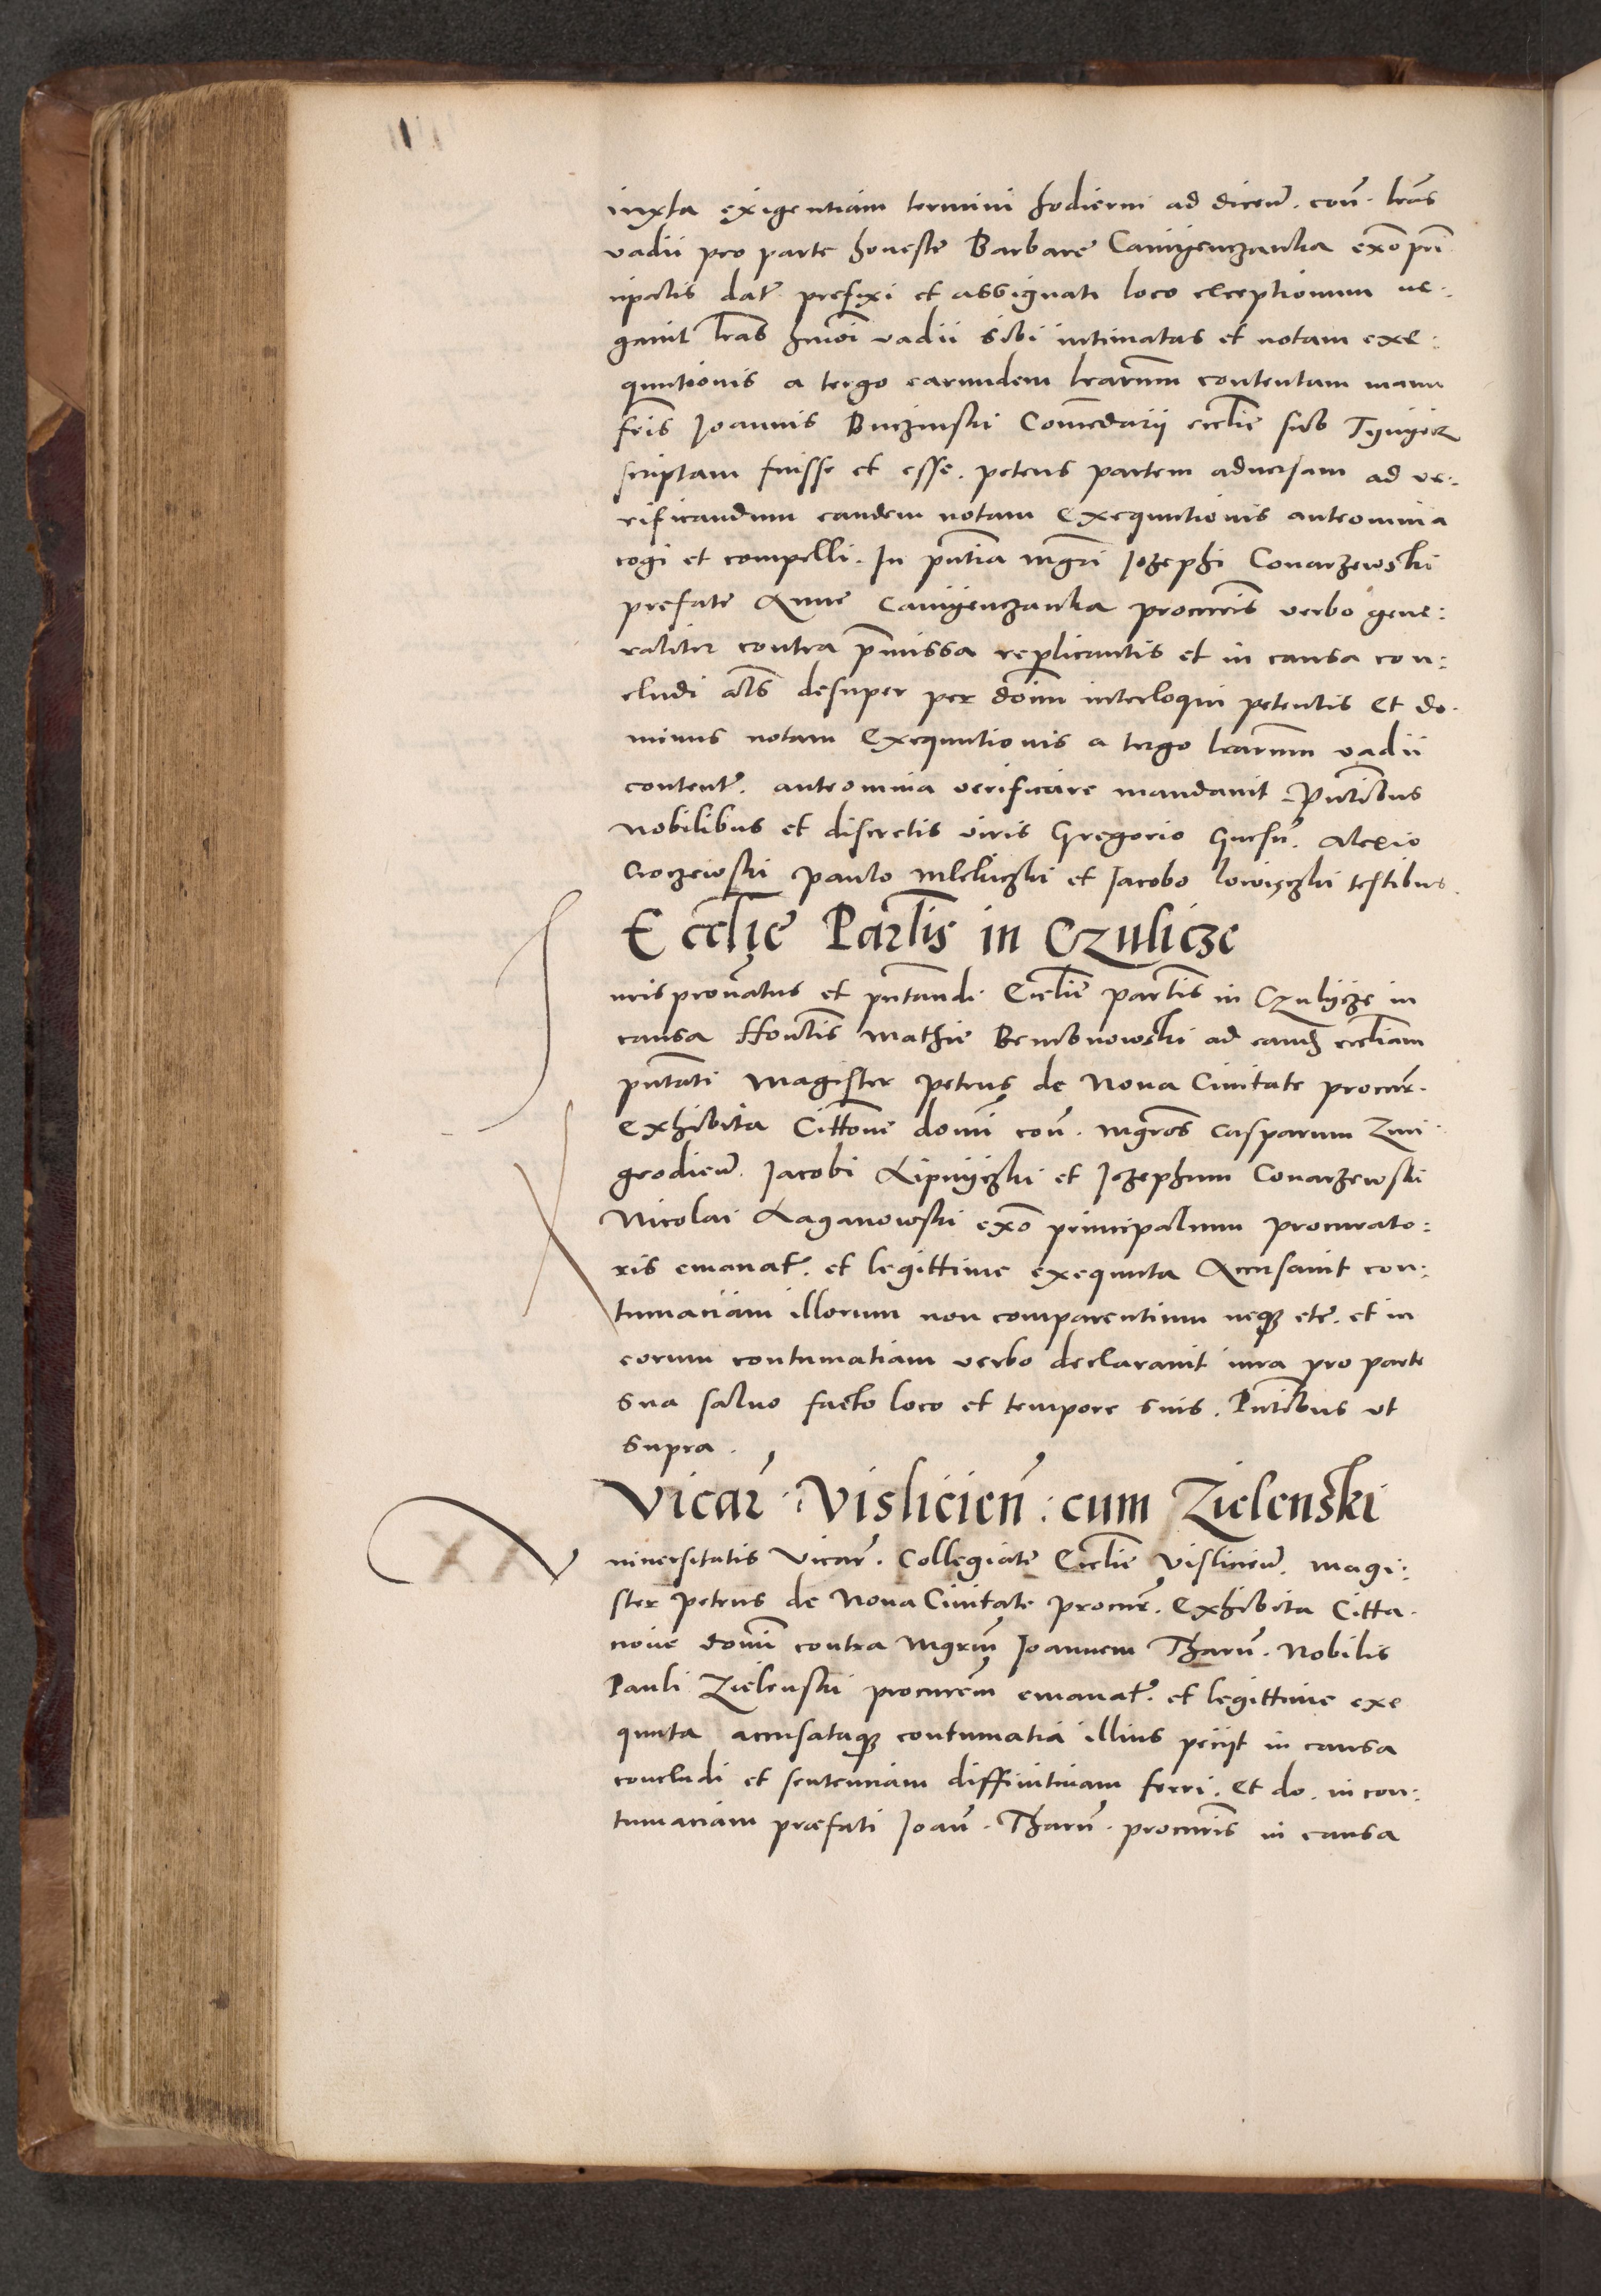 iuxta exigentiam termini hodierni ad dicen̄. con̄. lr̄as
vadii pro parte honeste Barbare Camyenczanka ex̄o prin
cipalis dat̄. prefixi et assignati loco exceptionum ne:
gauit lr̄as hmōi vadii sibi intimatas et notam exe:
quutionis a tergo earundem lrarum contentam manu
 Joannis Buczinski Comēdarij ecclīe sub Tynyecz
scriptam fuisse et esse. petens partem aduersam ad ve:
rificandum eandem notam exequutionis anteomnia
cogi et compelli. In pn̄tia mgrī Jozephi Conarzewski
prefate Anne Camyenczanka procur̄is verbo gene:
raliter contra pr̄missa replicantis et in causa con:
cludi al̄s desuper per dom̄ interloqui petentis Et do.
minus notam exequutionis a tergo lrarum vadii
content̄. anteomnia verificare mandauit. Pn̄tibus
nobilibus et discretis viris Gregorio Alexio
Croczewski Paulo et Jacobo testibus.
Eccl̄ie Parl̄is in Czulicze
uris pron̄atus et pn̄tandi Eccl̄ie parl̄is in Czulycze in
causa Hon̄lis Mathie Bembnowski ad eand̄ eccl̄iam
pn̄tati Magister Petrus de Noua Ciuitate procur̄.
exhibita Citt̄one domī con̄. mgr̄os Casparum Zmi
grodien̄. Jacobi Lipnyczki et Jozephum Conarzewski
Nicolai Laganowski ex̄o principalium procurato:
ris emanat̄. et legittime exequuta Accusauit con:
tumaciam illorum non comparentium neq₃ etc̄. et in
eorum contumatiam verbo declarauit iura pro parte
sua saluo facto loco et tempore suis. Pn̄tibus ut
supra.
Vicar̄. Vislicien̄: cum Zielenski
niuersitatis Vicar̄. Collegiate Eccl̄ie Vislicien̄. Magi:
ster Petrus de Noua Ciuitate procur̄. exhibita Citta.
tione domī contra Mgrum̄ Joannem Tharn̄. Nobilis
Pauli Zielenski procurēm emanat̄. et legittime exe
quuta accusataq₃ contumatia illius peciit in causa
concludi et sentenciam diffinitiuam ferri. Et do. in con:
tumaciam præfati Joan̄. Tharn̄. procur̄is in causa